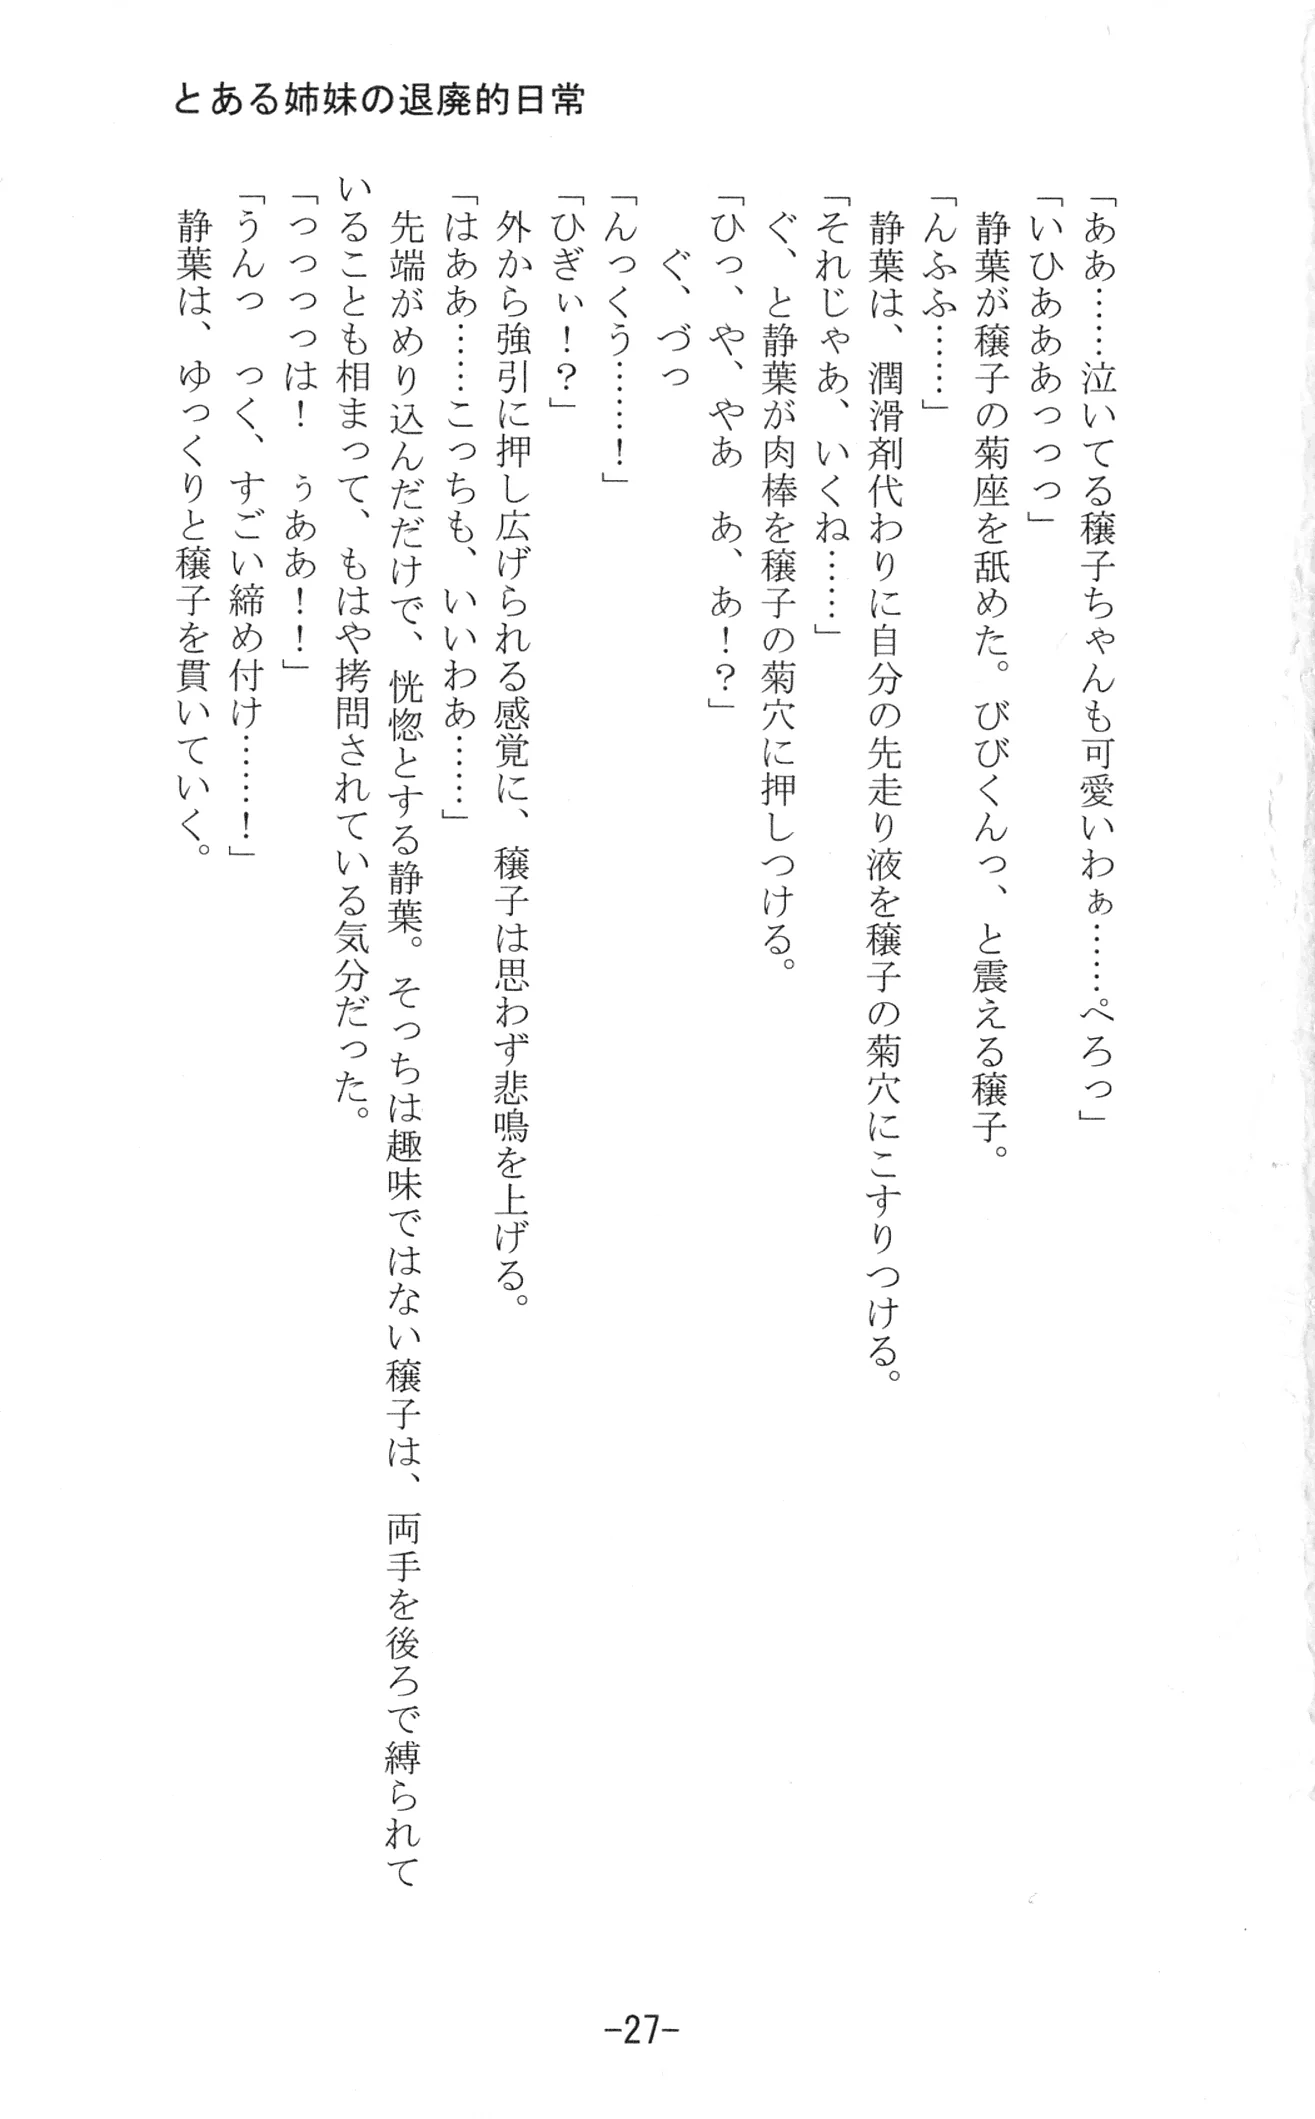 とある姉妹の退廃的日常
「ああ……泣いてる穣子ちゃんも可愛いわぁ……ぺろっ」
「いひあああっっっ」
静葉が穣子の菊座を舐めた。びびくんっ、と震える穣子。
「んふふ……」
静葉は、潤滑剤代わりに自分の先走り液を穣子の菊穴にこすりつける。
「それじゃあ、いくね……」
ぐ、と静葉が肉棒を穣子の菊穴に押しつける。
「ひっ、や、やあ　あ、あ！？」
ぐ、づっ
「んっくう……！」
「ひぎぃ！？」
外から強引に押し広げられる感覚に、穣子は思わず悲鳴を上げる。
「はああ……こっちも、いいわあ……」
先端がめり込んだだけで、恍惚とする静葉。そっちは趣味ではない穣子は、両手を後ろで縛られて
いることも相まって、もはや拷問されている気分だった。
「っっっっは！　ぅああ！！」
「うんっ　っく、すごい締め付け……！」
静葉は、ゆっくりと穣子を貫いていく。
-27-